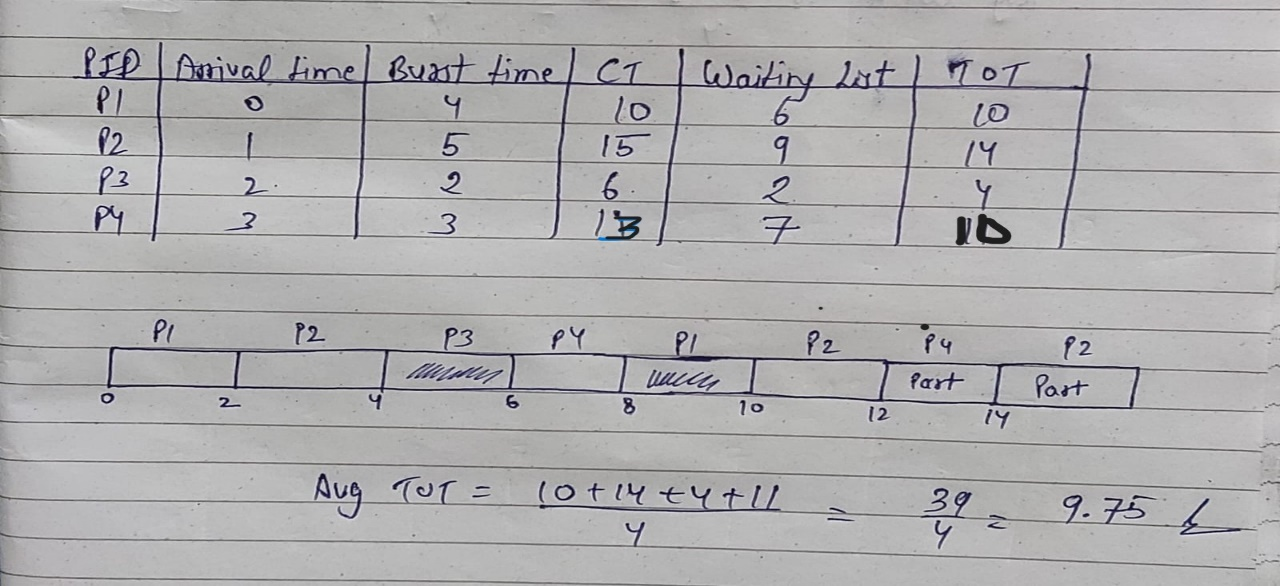 PID | Arrival time | Burst time | CT | Waiting List | TOT |
P1 | 0 | 4 | 10 | 6 | 10 |
P2 | 1 | 5 | 15 | 9 | 14 |
P3 | 2 | 2 | 6 | 2 | 4 |
P4 | 3 | 3 | 13 | 7 | 10 |
P1 P2 P3 P4 P1 P2 P4 P2
Part Part
0 2 4 6 8 10 12 14
Avg TOT = (10+14+4+11)/4 = 39/4 = 9.75